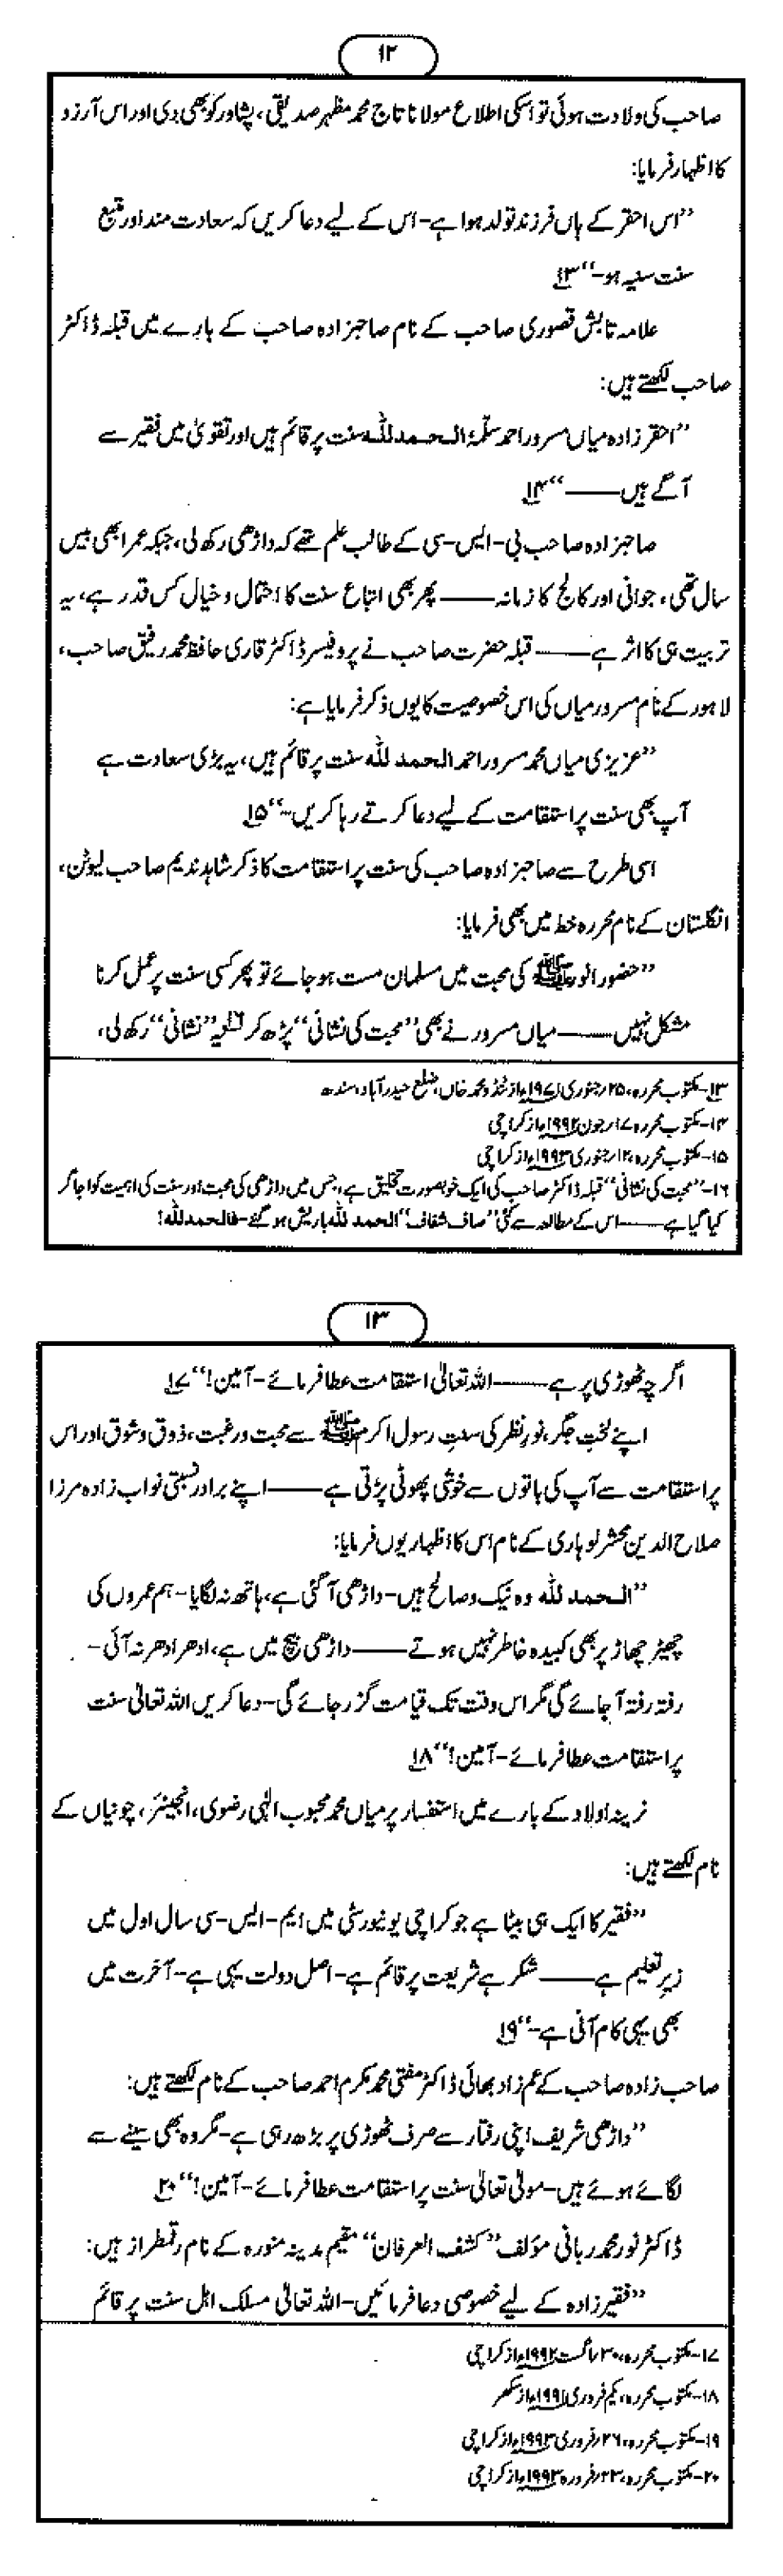 ۱۲
صاحب کی ولادت ہوئی تو اسکی اطلاع مولانا تاج محمد مظہر صدیقی، پشاور کو بھی دی اور اس آرزو
کا اظہار فرمایا:
”اس احقر کے ہاں فرزند تولد ہوا ہے-اس کے لیے دعا کریں کہ سعادت مند اور متبع
سنت سنیہ ہو-“۱۳
علامہ تابش قصوری صاحب کے نام صاحبزادہ صاحب کے بارے میں قبلہ ڈاکٹر
صاحب لکھتے ہیں:
”احقر زادہ میاں مسرور احمد سلّمہٗ الحمد للہ سنت پر قائم ہیں اور تقویٰ میں فقیر سے
آگے ہیں——“۱۴
صاحبزادہ صاحب بی-ایس-سی کے طالب علم تھے کہ داڑھی رکھ لی، جبکہ عمر ابھی بیس
سال تھی، جوانی اور کالج کا زمانہ——پھر بھی اتباع سنت کا احتمال و خیال کس قدر ہے، یہ
تربیت ہی کا اثر ہے——قبلہ حضرت صاحب نے پروفیسر ڈاکٹر قاری حافظ محمد رفیق صاحب،
لاہور کے نام مسرور میاں کی اس خصوصیت کا یوں ذکر فرمایا ہے:
”عزیزی میاں محمد مسرور احمد الحمد للہ سنت پر قائم ہیں، یہ بڑی سعادت ہے
آپ بھی سنت پر استقامت کے لیے دعا کرتے رہا کریں-“۱۵
اسی طرح سے صاحبزادہ صاحب کی سنت پر استقامت کا ذکر شاہد ندیم صاحب لیوٹن،
انگلستان کے نام محررہ خط میں بھی فرمایا:
”حضور انور ﷺ کی محبت میں مسلمان مست ہو جائے تو پھر کسی سنت پر عمل کرنا
مشکل نہیں——میاں مسرور نے بھی ”محبت کی نشانی“ پڑھ کر ۱۶ یہ ”نشانی“ رکھ لی،
۱۳-مکتوب محررہ، ۲۵/جنوری ۱۹۷۱ء از ٹنڈو محمد خاں، ضلع حیدرآباد، سندھ
۱۴-مکتوب محررہ ۱۷/جون ۱۹۹۲ء از کراچی
۱۵-مکتوب محررہ، ۱۲/جنوری ۱۹۹۳ء از کراچی
۱۶-”محبت کی نشانی“ قبلہ ڈاکٹر صاحب کی ایک خوبصورت تخلیق ہے، جس میں داڑھی کی محبت اور سنت کی اہمیت کو اجاگر
کیا گیا ہے——اس کے مطالعہ سے کئی ”صاف شفاف“ الحمد للہ باریش ہو گئے-فالحمد للہ!
۱۳
اگرچہ ٹھوڑی پر ہے——اللہ تعالیٰ استقامت عطا فرمائے-آمین!“۱۷
اپنے لخت جگر، نور نظر کی سنتِ رسول اکرم ﷺ سے محبت و رغبت، ذوق و شوق اور اس
پر استقامت سے آپ کی باتوں سے خوشی پھوٹی پڑتی ہے——اپنے برادر نسبتی نواب زادہ مرزا
صلاح الدین محشر لوہاری کے نام اس کا اظہار یوں فرمایا:
”الحمد للہ وہ نیک و صالح ہیں-داڑھی آ گئی ہے، ہاتھ نہ لگایا-ہم عمروں کی
چھیڑ چھاڑ پر بھی کبیدہ خاطر نہیں ہوتے——داڑھی بیچ میں ہے، ادھر ادھر نہ آئی-
رفتہ رفتہ آ جائے گی مگر اس وقت تک قیامت گزر جائے گی-دعا کریں اللہ تعالیٰ سنت
پر استقامت عطا فرمائے-آمین!“۱۸
نرینہ اولاد کے بارے میں استفسار پر میاں محمد محبوب الٰہی رضوی، انجینئر، چونیاں کے
نام لکھتے ہیں:
”فقیر کا ایک ہی بیٹا ہے جو کراچی یونیورسٹی میں ایم-ایس-سی سال اول میں
زیر تعلیم ہے——شکر ہے شریعت پر قائم ہے-اصل دولت یہی ہے-آخرت میں
بھی یہی کام آنی ہے-“۱۹
صاحب زادہ صاحب کے عم زاد بھائی ڈاکٹر مفتی محمد مکرم احمد صاحب کے نام لکھتے ہیں:
”داڑھی شریف اپنی رفتار سے صرف ٹھوڑی پر بڑھ رہی ہے-مگر وہ بھی سینے سے
لگائے ہوئے ہیں-مولیٰ تعالیٰ سنت پر استقامت عطا فرمائے-آمین!“۲۰
ڈاکٹر نور محمد ربانی مؤلف ”کشف العرفان“ مقیم مدینہ منورہ کے نام رقمطراز ہیں:
”فقیر زادہ کے لیے خصوصی دعا فرمائیں-اللہ تعالیٰ مسلک اہل سنت پر قائم
۱۷-مکتوب محررہ، ۳۰/اگست ۱۹۹۲ء از کراچی
۱۸-مکتوب محررہ، یکم فروری ۱۹۹۱ء از سکھر
۱۹-مکتوب محررہ، ۲۶/فروری ۱۹۹۳ء از کراچی
۲۰-مکتوب محررہ، ۲۳/فرورہ ۱۹۹۳ء از کراچی